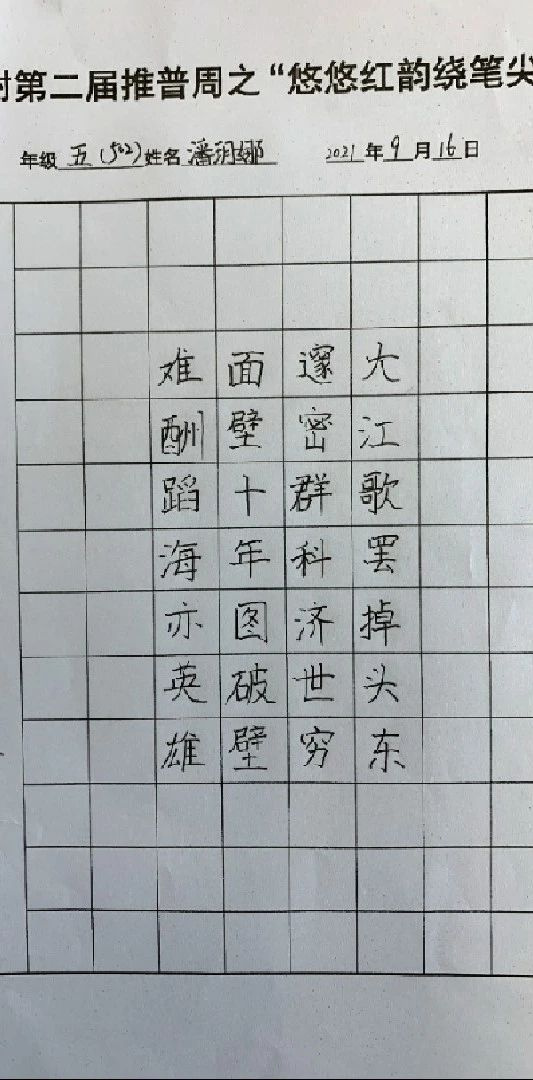 第二届推普周之“悠悠红韵绕笔尖
年级 五(502) 姓名 2021 年 9 月 16 日
大江歌罢掉头东
邃密群科济世穷
面壁十年图破壁
难酬蹈海亦英雄